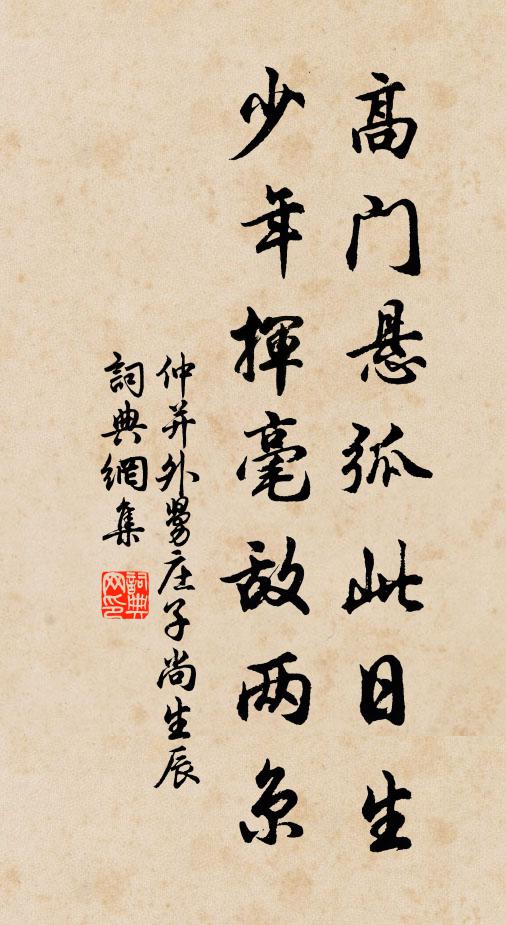 高门悬弧此日生
少年揮毫敌两京
仲并外舅庄子尚生辰
詞典網集
詞典网印